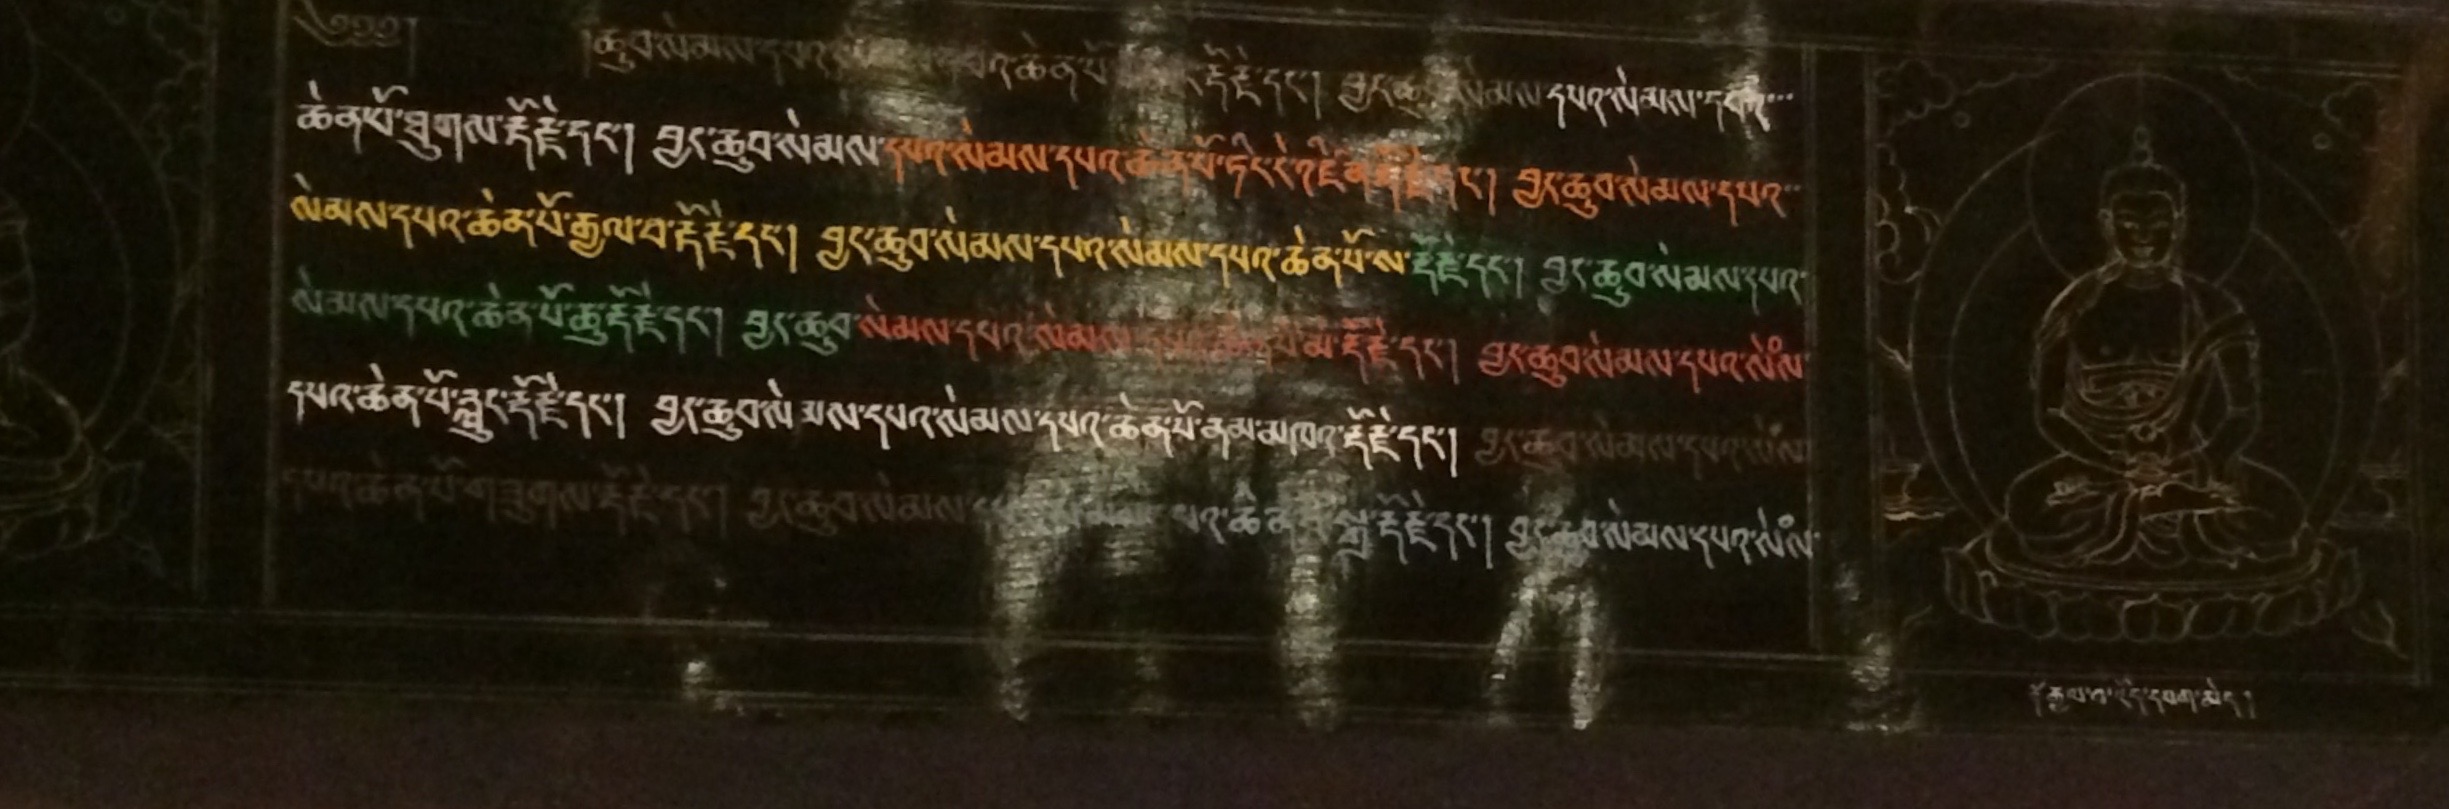 །ཆུབ་སེམས་དཔའ་ ཆེན་པོ་ རྡོ་རྗེ་དང་། བྱང་ཆུབ་སེམས་དཔའ་སེམས་དཔའ་
ཆེན་པོ་ཐུགས་རྡོ་རྗེ་དང་། བྱང་ཆུབ་སེམས་དཔའ་སེམས་དཔའ་ཆེན་པོ་ཏིང་ངེ་འཛིན་རྡོ་རྗེ་དང་། བྱང་ཆུབ་སེམས་དཔའ་
སེམས་དཔའ་ཆེན་པོ་རྒྱལ་བ་རྡོ་རྗེ་དང་། བྱང་ཆུབ་སེམས་དཔའ་སེམས་དཔའ་ཆེན་པོ་ས་རྡོ་རྗེ་དང་། བྱང་ཆུབ་སེམས་དཔའ་
སེམས་དཔའ་ཆེན་པོ་ཆུ་རྡོ་རྗེ་དང་། བྱང་ཆུབ་སེམས་དཔའ་སེམས་དཔའ་ཆེན་པོ་མེ་རྡོ་རྗེ་དང་། བྱང་ཆུབ་སེམས་དཔའ་སེཾས་
དཔའ་ཆེན་པོ་རླུང་རྡོ་རྗེ་དང་། བྱང་ཆུབ་སེམས་དཔའ་སེམས་དཔའ་ཆེན་པོ་ནམ་མཁའ་རྡོ་རྗེ་དང་། བྱང་ཆུབ་སེམས་དཔའ་སེཾས་
དཔའ་ཆེན་པོ་གཟུགས་རྡོ་རྗེ་དང་། བྱང་ཆུབ་སེམས་ དཔའ་ཆེན་པོ་སྒྲ་རྡོ་རྗེ་དང་། བྱང་ཆུབ་སེམས་དཔའ་སེཾས་
རྒྱལ་བ་འོད་དཔག་མེད།